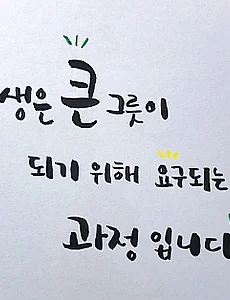 생은 큰 그릇이
되기 위해 요구되는
과정 입니다